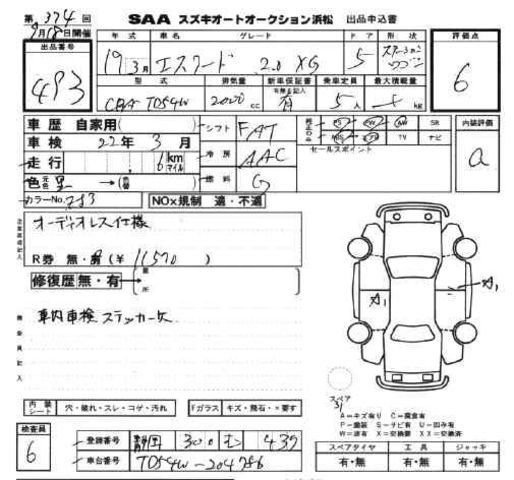 第 374 回
9月18日開催
SAA スズキオートオークション浜松 出品申込書
出品番号
493
年式 車名 グレード ドア 形状
19 3月 エスクード 2.0 XG 5 ステーションワゴン
評価点
6
型式 排気量 新車保証書 有無を記入 乗車定員 最大積載量
CBA TD54W 2000 cc 有 5人 kg
車歴 自家用( ) シフト FAT
PS PW AW SR
TV ナビ
内装評価
a
車検 22年 3月 冷房 AAC
セールスポイント
走行 6 km マイル
色 元色 黒 燃料 G
カラーNo. ZJ3 NOx規制 適・不適
オーディオレス仕様
R券 無・有 (¥ 11570 )
修復歴 無・有
箇所
車内車検ステッカー欠
A1
A1
スペア
A=キズ有り C=腐食有
P=塗装 S=サビ有 U=凹み有
W=波有 X=交換要 XX=交換済
内装シート 穴・破れ・スレ・コゲ・汚れ Fガラス キズ・飛石・×要す
検査員
6
登録番号 静岡 300 む 439
車台番号 TD54W-204786
スペアタイヤ 工具 ジャッキ
有・無 有・無 有・無